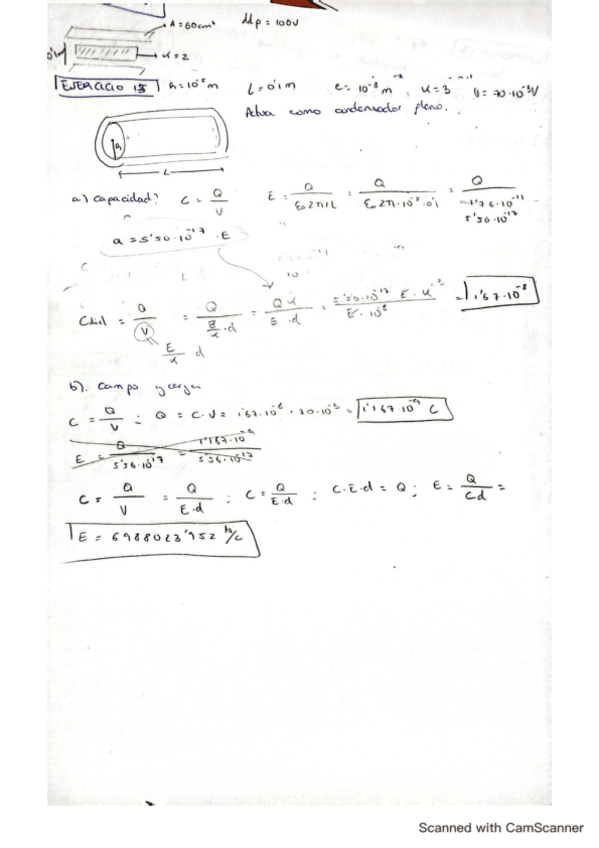 A = 60cm²
= 100V
K = 2
EJERCICIO 15 a = 10⁻⁵ m L = 0'1 m e = 10⁻⁸ m K = 3 V = 70·10⁻³ V
Actua como condensador plano.
a
L
a) capacidad? C = Q/V E = Q/(ε₀ 2π r L) = Q/(ε₀ 2π·10⁻⁵·0'1) = Q/(5'56·10⁻¹⁷)
Q = 5'56·10⁻¹⁷ · E
= Q/V = Q/(E/K · d) = Q K/(E · d) = = 1'67·10⁻⁸
E/K d
b). Campo y carga
C = Q/V : Q = C·V = 1'67·10⁻⁸ · 70·10⁻³ = 1'167·10⁻⁹ C
E = Q/(5'56·10⁻¹⁷) = 1'167·10⁻⁹/(5'56·10⁻¹⁷)
C = Q/V = Q/(E·d) ; C = Q/(E·d) : C·E·d = Q ; E = Q/(Cd) =
E = 6988023'952 N/C
Scanned with CamScanner